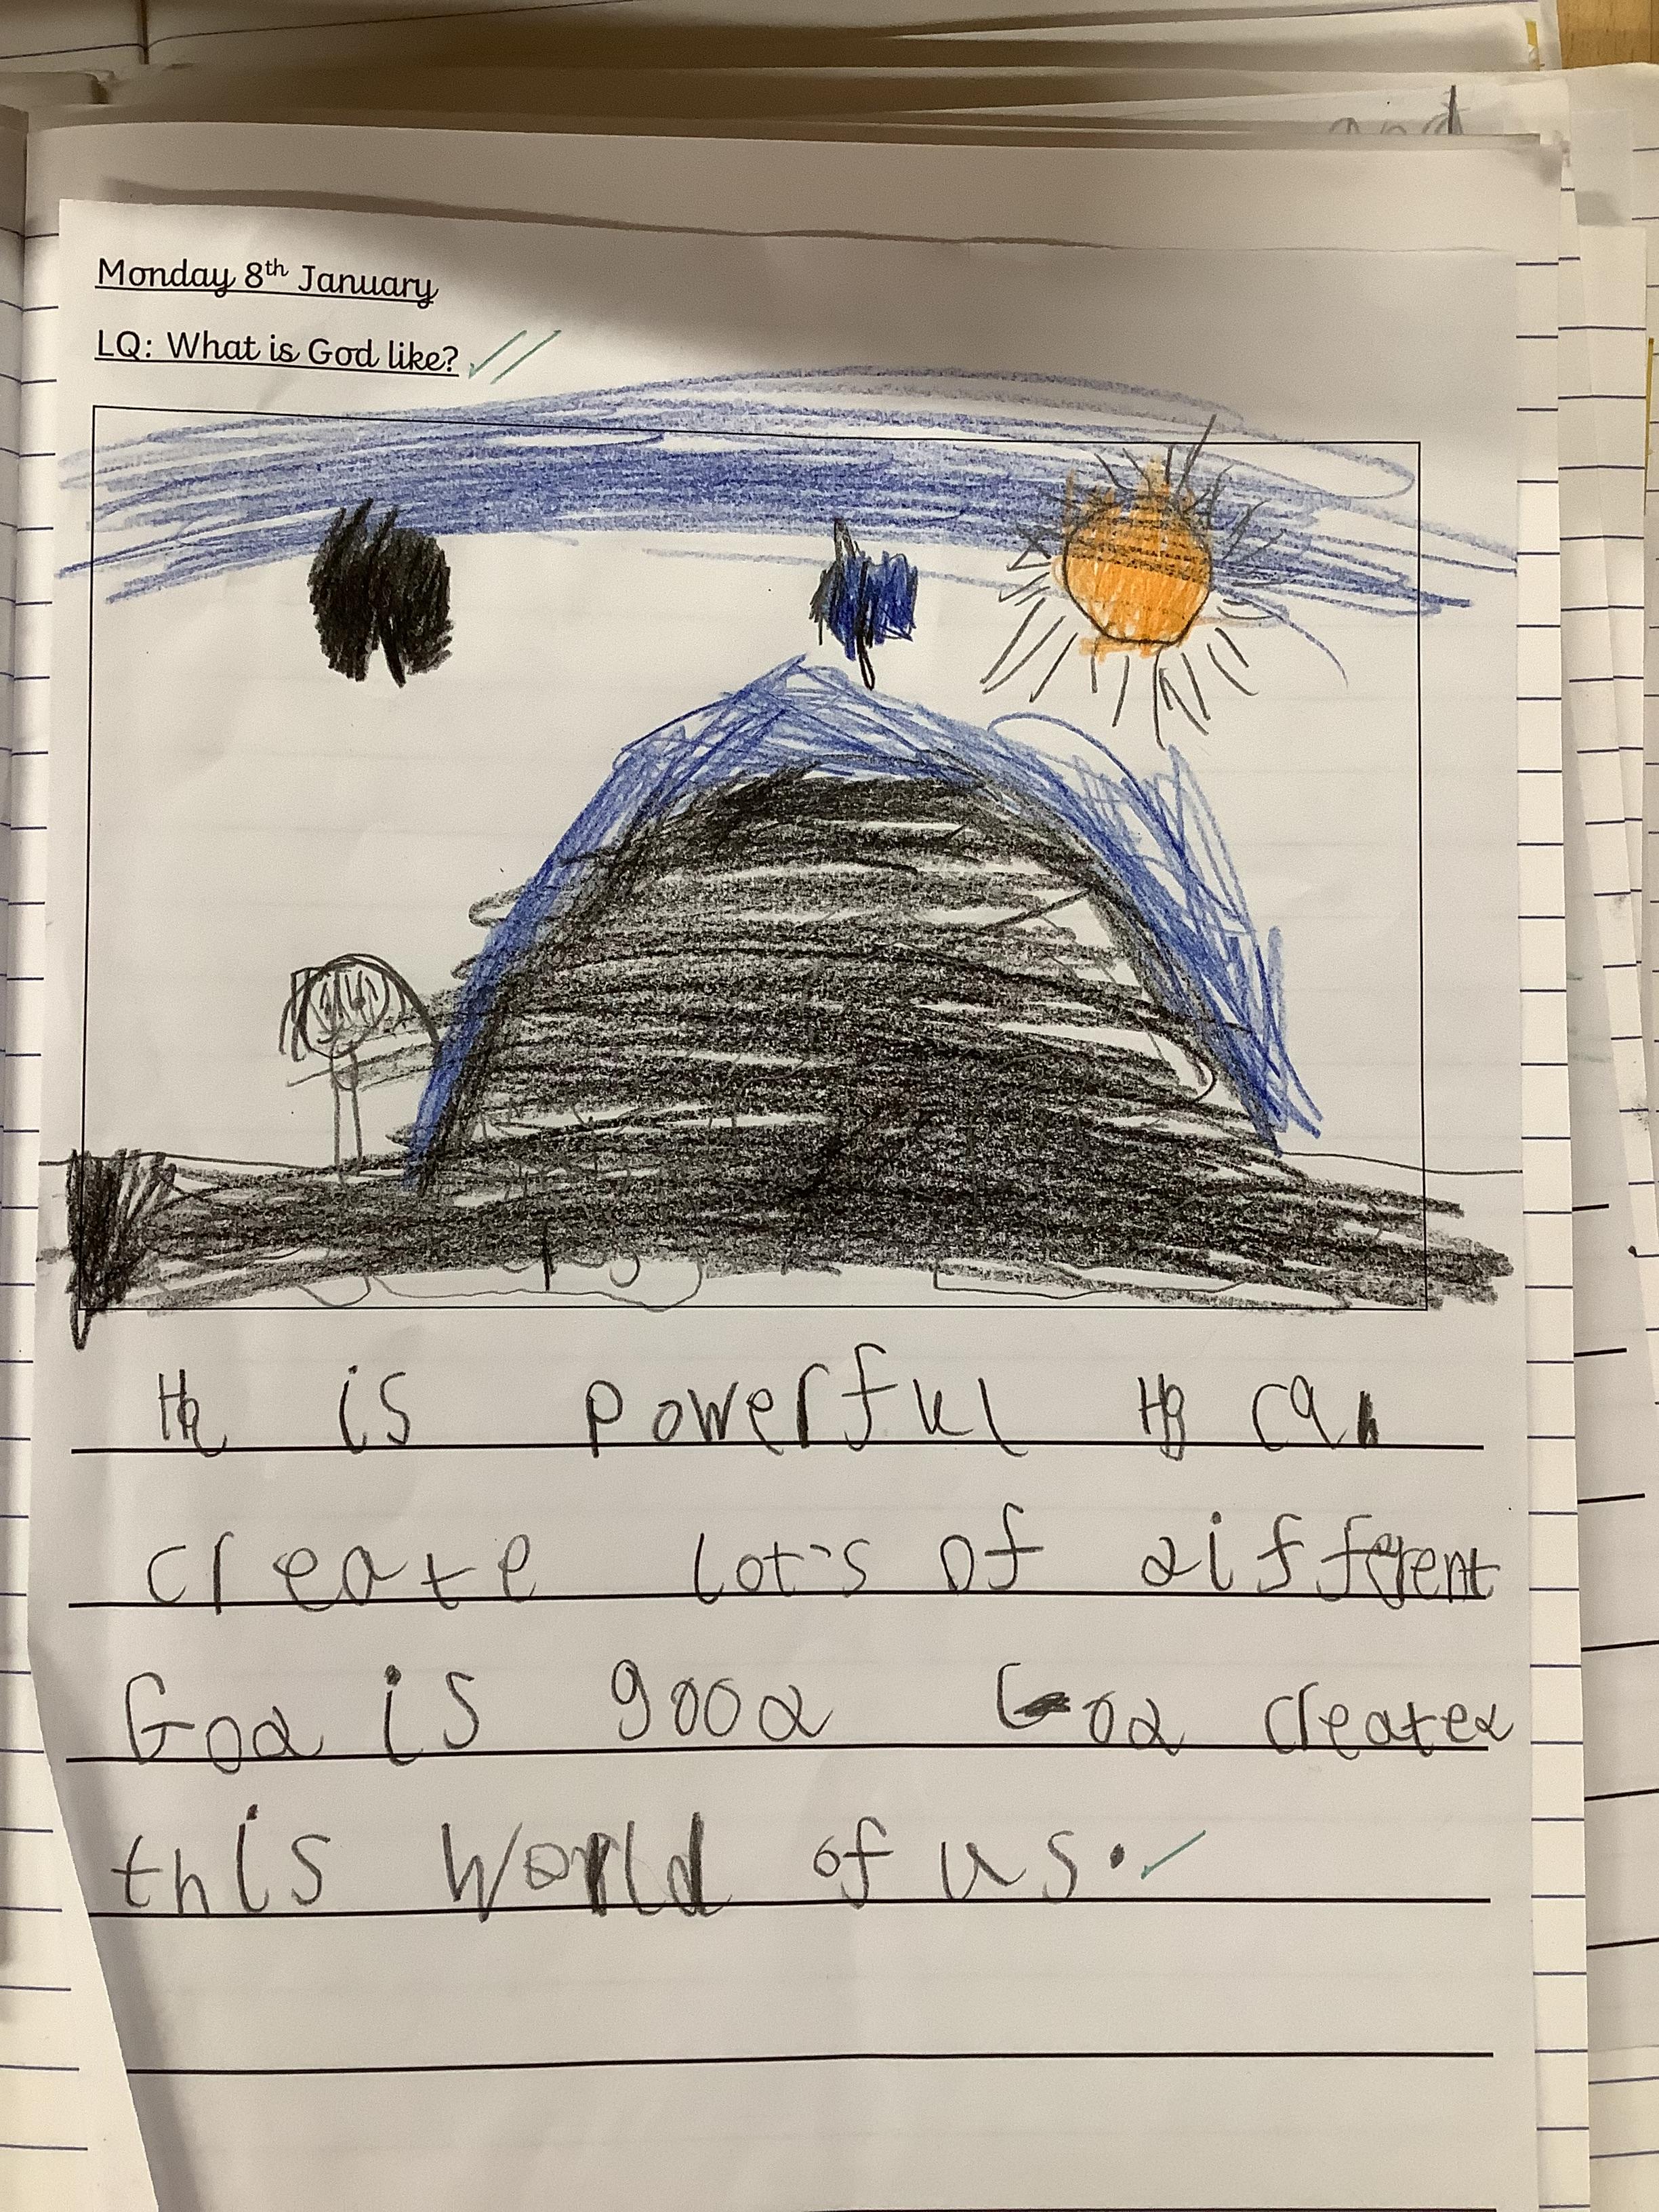 and
Monday 8th January
LQ: What is God like?
He is powerful He can
create lot's of different
God is good God created
this world of us.